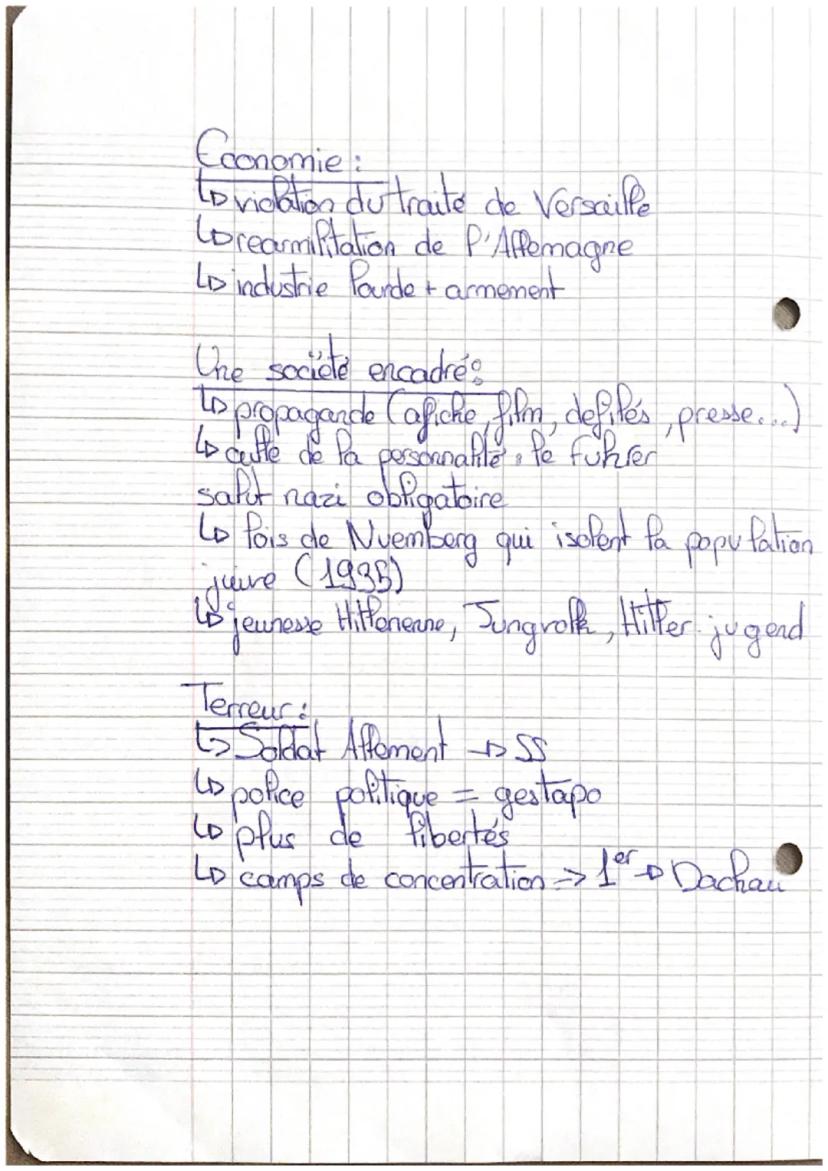 Economie :
↳ violation du traité de Versaille
↳ rearmilitation de l'Allemagne
↳ industrie lourde + armement
Une société encadré :
↳ propagande (afiche, film, defilés, presse...)
↳ culte de la personnalité : le fuhrer
salut nazi obligatoire
↳ lois de Nuemberg qui isolent la population
juive (1935)
↳ jeunesse Hitlerienne, Jungvolk, Hitler jugend
Terreur :
↳ Soldat Allement → SS
↳ police politique = gestapo
↳ plus de libertés
↳ camps de concentration => 1er → Dachau